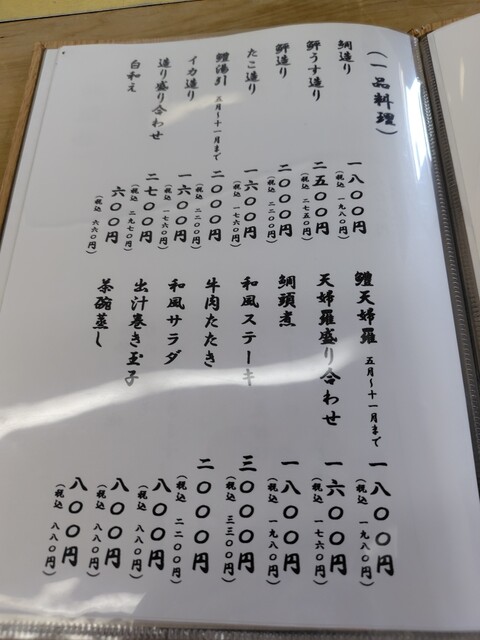 (一品料理)
鯛造り 一八〇〇円
(税込 一九八〇円)
鮃うす造り 二五〇〇円
(税込 二七五〇円)
鮃造り 二〇〇〇円
(税込 二二〇〇円)
たこ造り 一六〇〇円
(税込 一七六〇円)
鱧湯引 五月~十一月まで 二〇〇〇円
(税込 二二〇〇円)
イカ造り 一六〇〇円
(税込 一七六〇円)
造り盛り合わせ 二七〇〇円
(税込 二九七〇円)
白和え 六〇〇円
(税込 六六〇円)
鱧天婦羅 五月~十一月まで 一八〇〇円
(税込 一九八〇円)
天婦羅盛り合わせ 一六〇〇円
(税込 一七六〇円)
鯛頭煮 一八〇〇円
(税込 一九八〇円)
和風ステーキ 三〇〇〇円
(税込 三三〇〇円)
牛肉たたき 二〇〇〇円
(税込 二二〇〇円)
和風サラダ 八〇〇円
(税込 八八〇円)
出汁巻き玉子 八〇〇円
(税込 八八〇円)
茶碗蒸し 八〇〇円
(税込 八八〇円)